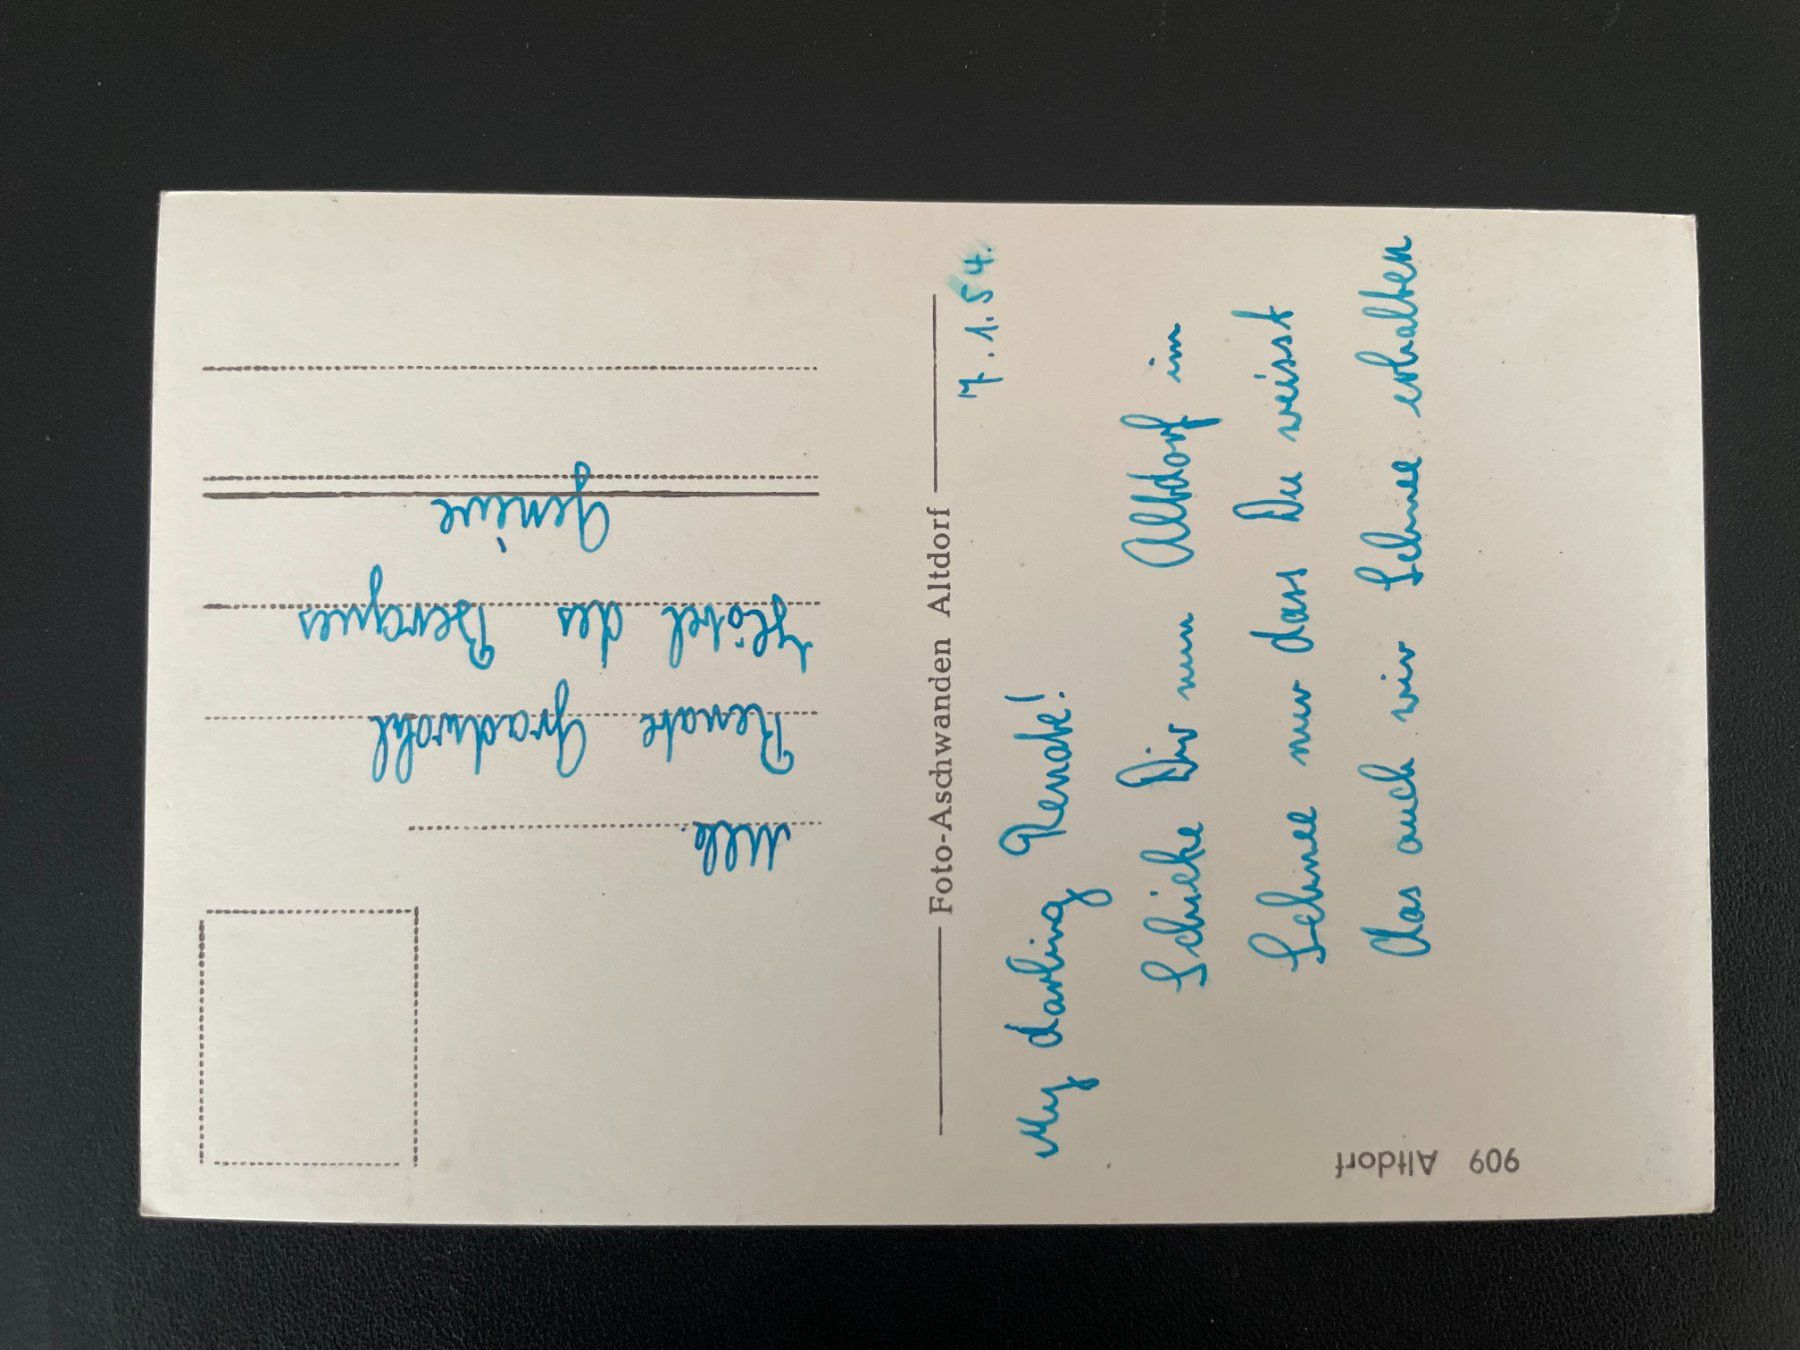 7.1.54.
My darling Renate!
Schicke Dir nun Altdorf im
Schnee nur dass Du weisst
das auch wir Schnee erhalten
Foto-Aschwanden Altdorf
Mlle.
Renate Gradwohl
Hôtel des Bergues
Genève
909 Altdorf